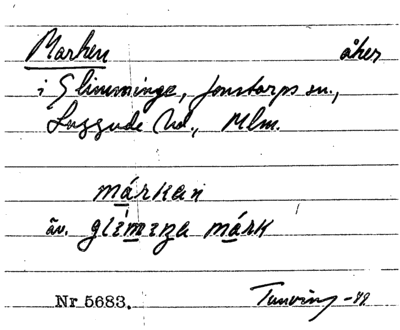 Marken åker
i Glimminge, Jonstorps sn.,
Luggude hd., Mlm.
márkan
äv. glìmıŋa márk
Nr 5683. Tunving -48